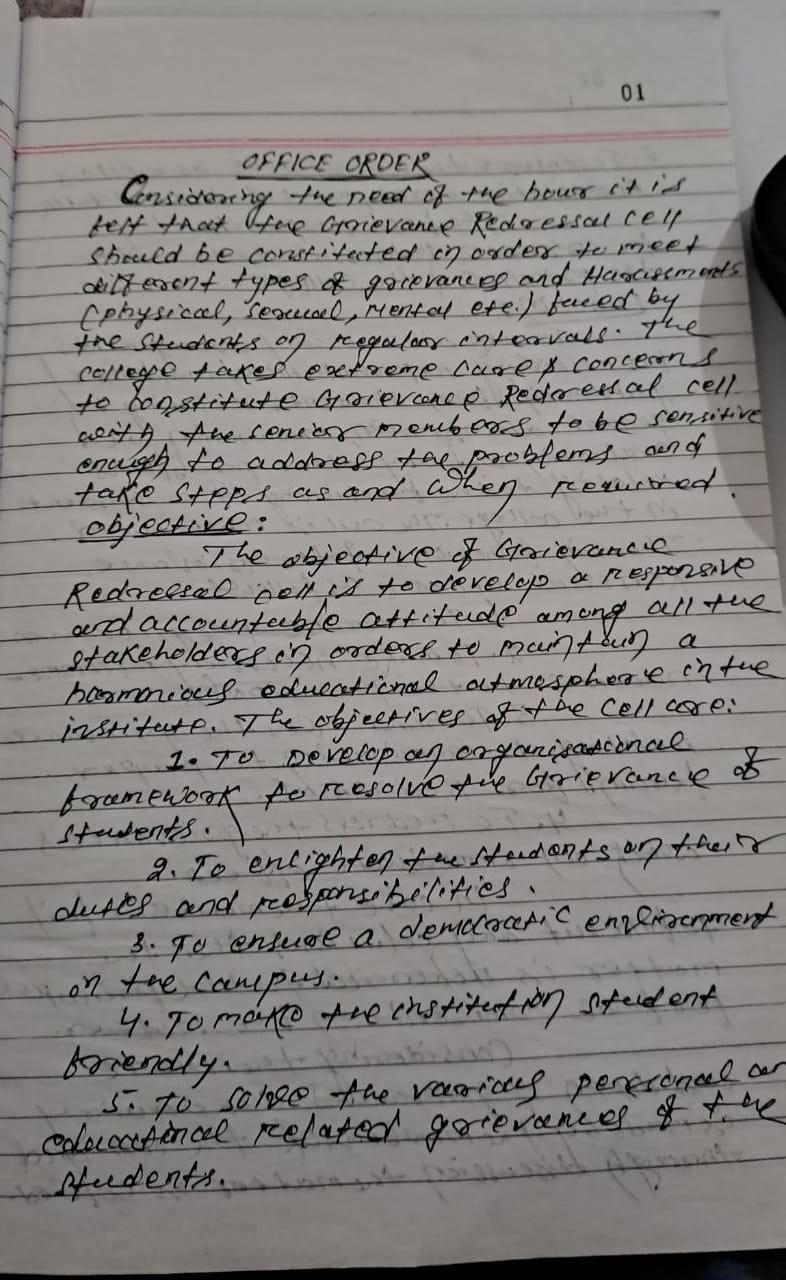 01
OFFICE ORDER
Considering the need of the hour it is
felt that the Grievance Redressal cell
should be constituted in order to meet
different types of grievances and Harassments
(physical, sexual, Mental etc.) faced by
the students on regular intervals. The
college takes extreme care & concerns
to constitute Grievance Redressal cell
with the senior members to be sensitive
enough to address the problems and
take steps as and when required.
objective:
The objective of Grievance
Redressal cell is to develop a responsive
and accountable attitude among all the
stakeholders in orders to maintain a
harmonious educational atmosphere in the
institute. The objectives of the cell are:
1. To Develop an organisational
framework to resolve the Grievance of
students.
2. To enlighten the students on their
duties and responsibilities.
3. To ensure a democratic environment
on the campus.
4. To make the institution student
friendly.
5. To solve the various personal
educational related grievances of the
students.